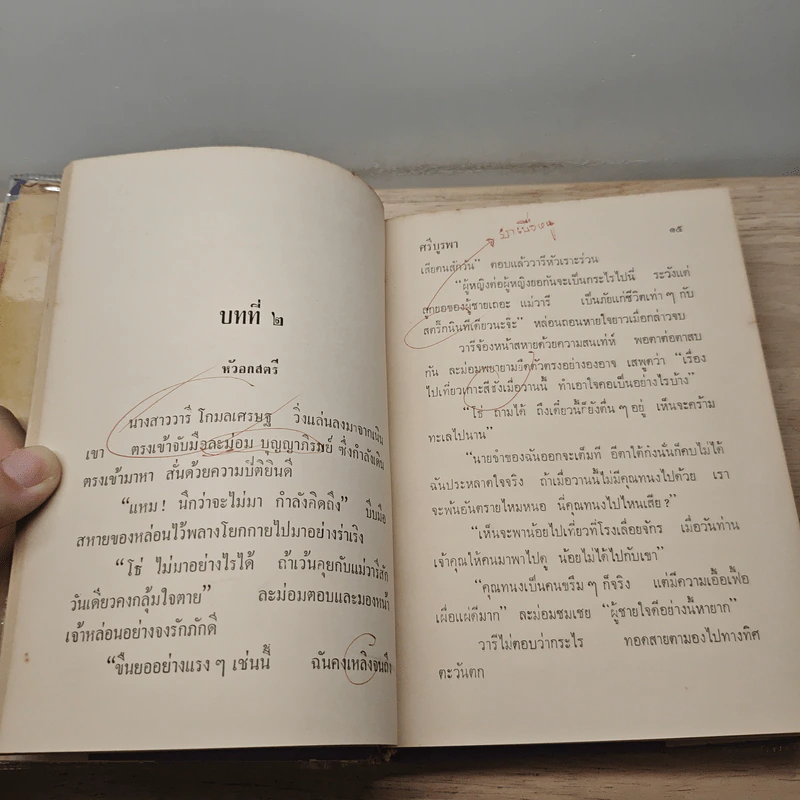 บทที่ ๒
หัวอกสตรี
นางสาววารี โกมลเศรษฐ วิ่งแล่นลงมาจากเนิน
เขา ตรงเข้าจับมือละม่อม บุญญาภิรมย์ ซึ่งกำลังเดิน
ตรงเข้ามาหา สั่นด้วยความปิติยินดี
“แหม! นึกว่าจะไม่มา กำลังคิดถึง” บีบมือ
สหายของหล่อนไว้พลางโยกกายไปมาอย่างร่าเริง
“โธ่ ไม่มาอย่างไรได้ ถ้าเว้นคุยกับแม่วารีสัก
วันเดียวคงกลุ้มใจตาย” ละม่อมตอบและมองหน้า
เจ้าหล่อนอย่างจงรักภักดี
“ขืนยออย่างแรง ๆ เช่นนี้ ฉันคงเหลิงจนถึง
ศรีบูรพา
๑๕
เสียคนสักวัน” ตอบแล้ววารีหัวเราะร่วน
“ผู้หญิงต่อผู้หญิงยอกันจะเป็นกระไรไปนี่ ระวังแต่
ลูกยอของผู้ชายเถอะ แม่วารี เป็นภัยแก่ชีวิตเท่า ๆ กับ
สตริ๊กนินทีเดียวนะจ๊ะ” หล่อนถอนหายใจยาวเมื่อกล่าวจบ
วารีจ้องหน้าสหายด้วยความสนเท่ห์ พอตาต่อตาสบ
กัน ละม่อมพยายามยืดตัวตรงอย่างองอาจ เสพูดว่า “เรื่อง
ไปเที่ยวเกาะสีชังเมื่อวานนี้ ทำเอาใจคอเป็นอย่างไรบ้าง”
“โธ่ ถามได้ ถึงเดี๋ยวนี้ก็ยังตื่น ๆ อยู่ เห็นจะคร้าม
ทะเลไปนาน”
“นายขำของฉันออกจะเต็มที อีตาใต้ก๋งนั่นก็คบไม่ได้
ฉันประหลาดใจจริง ถ้าเมื่อวานนี้ไม่มีคุณทนงไปด้วย เรา
จะพ้นอันตรายไหมหนอ นี่คุณทนงไปไหนเสีย?”
“เห็นจะพาน้อยไปเที่ยวที่โรงเลื่อยจักร เมื่อวันท่าน
เจ้าคุณให้คนมาพาไปดู น้อยไม่ได้ไปกับเขา”
“คุณทนงเป็นคนขรึม ๆ ก็จริง แต่มีความเอื้อเฟื้อ
เผื่อแผ่ดีมาก” ละม่อมชมเชย “ผู้ชายใจดีอย่างนี้หายาก”
วารีไม่ตอบว่ากระไร ทอดสายตามองไปทางทิศ
ตะวันตก